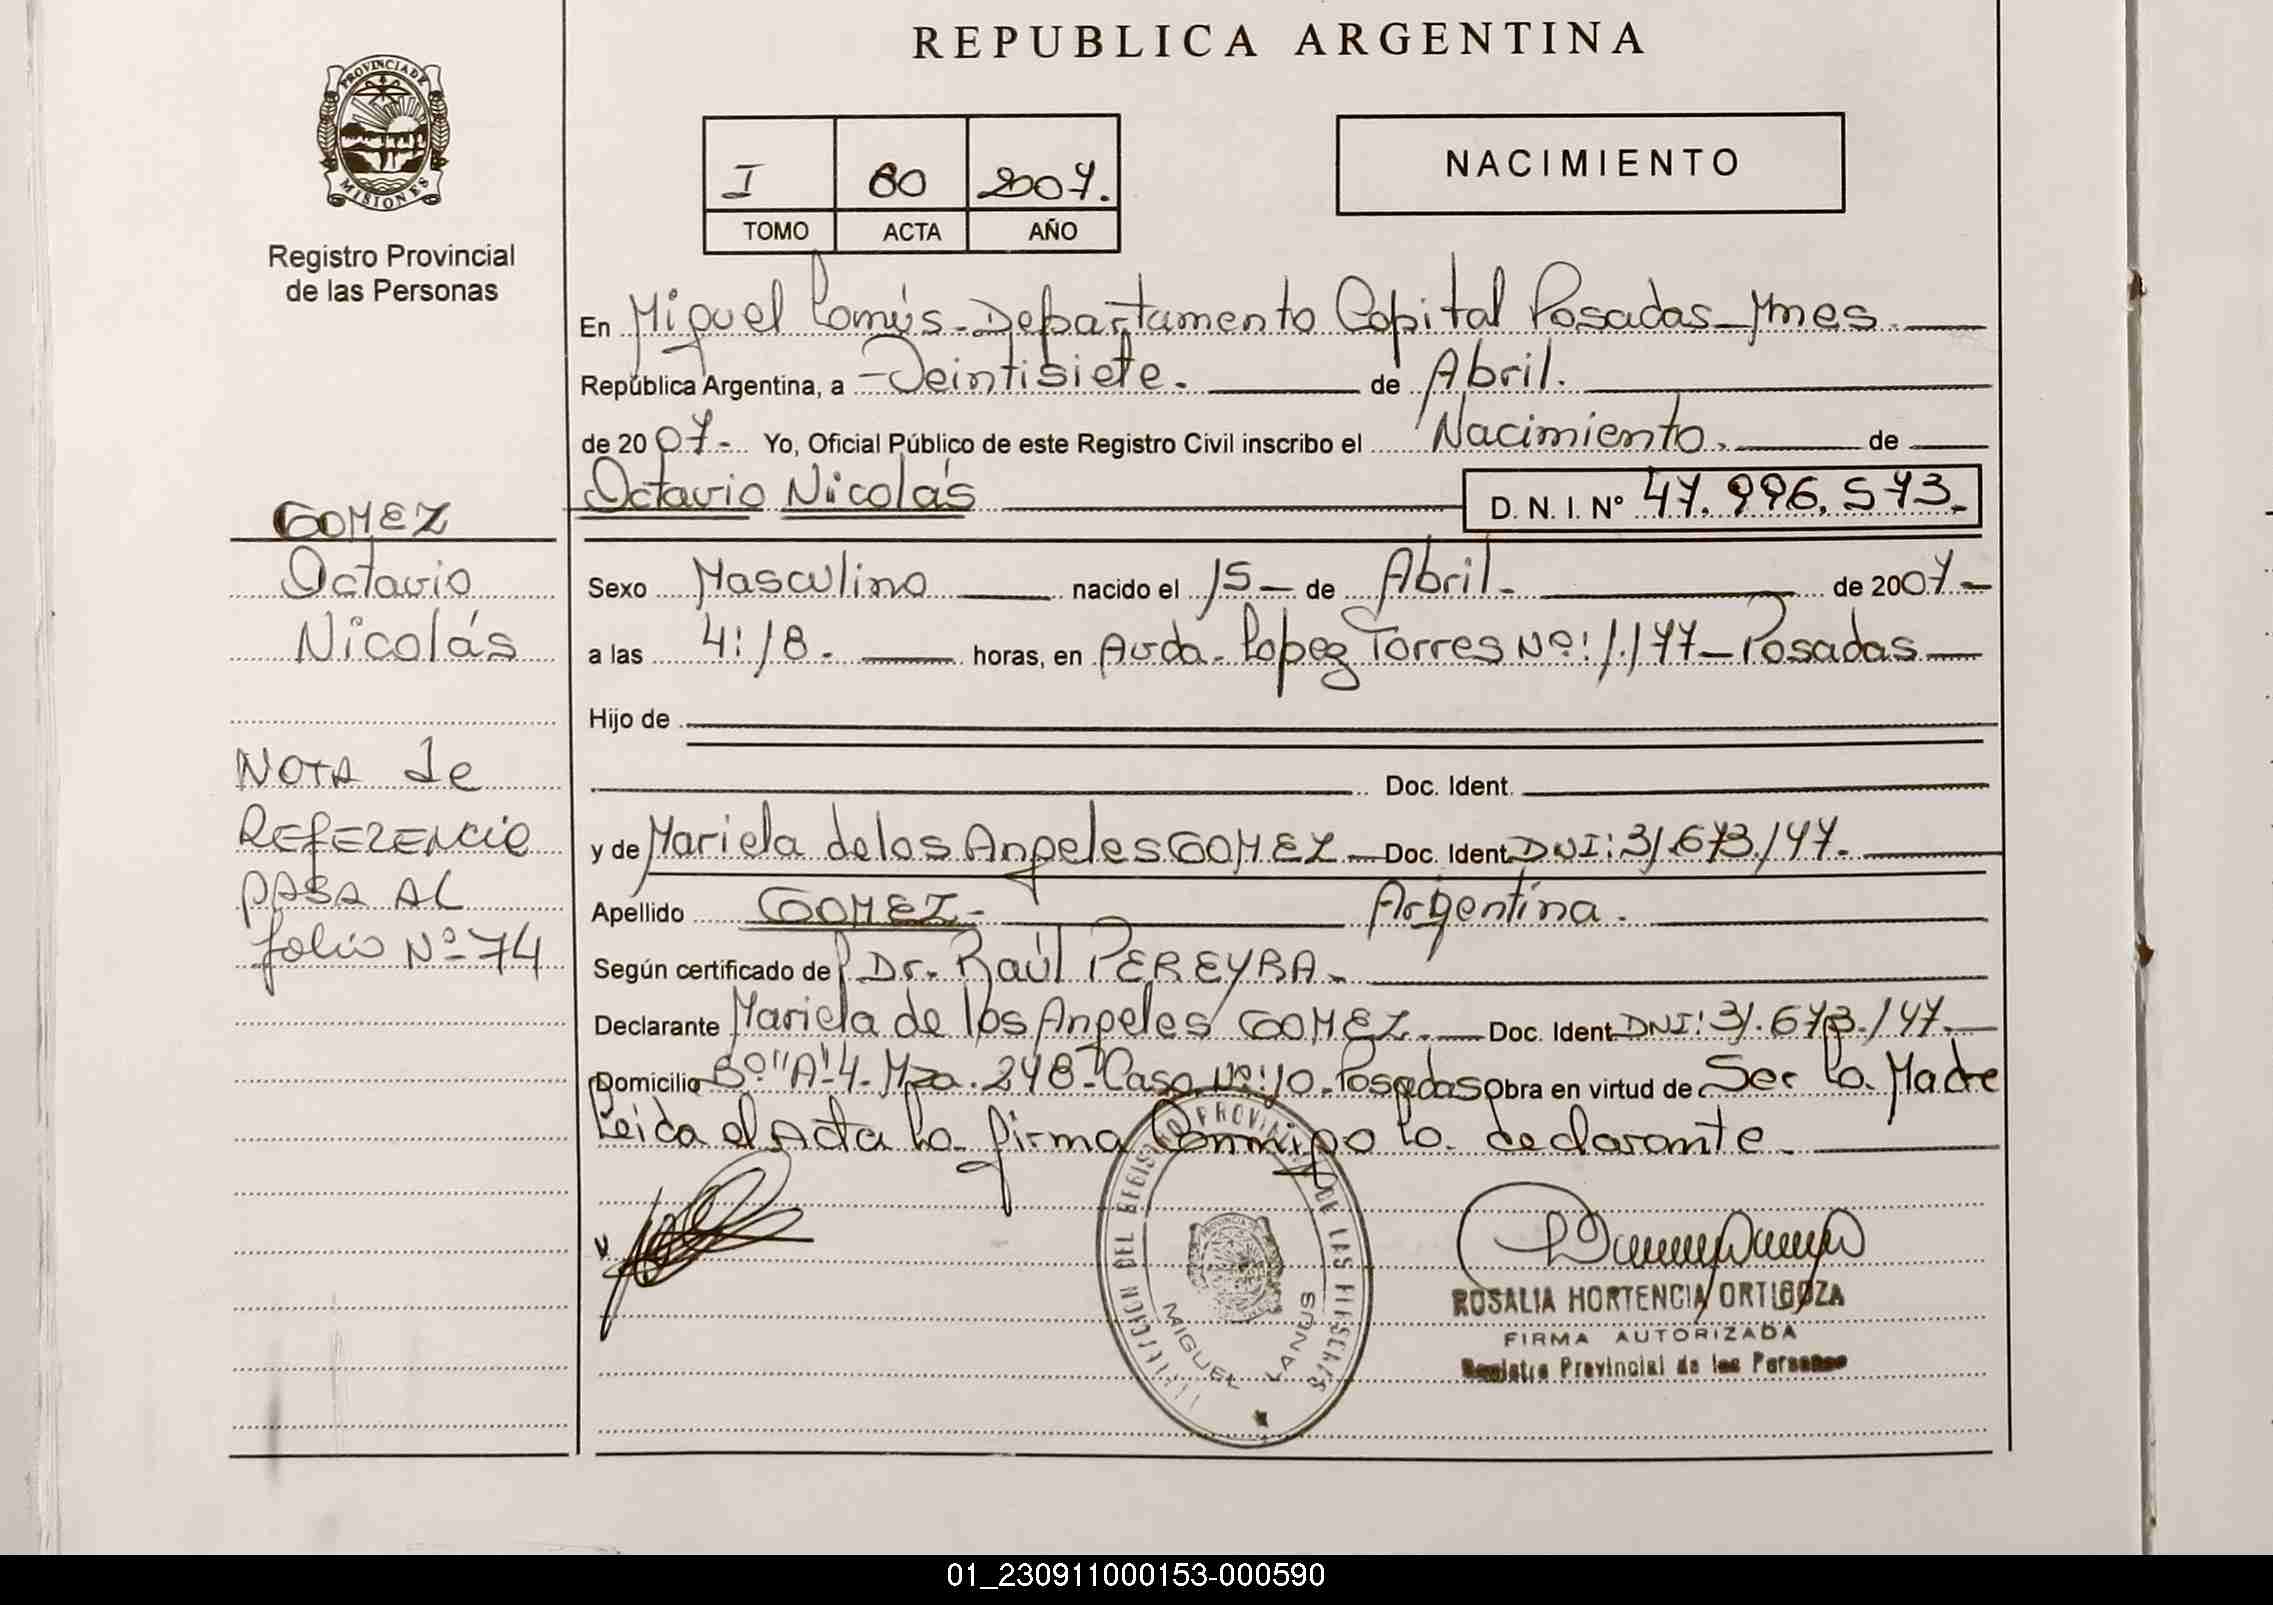 REPUBLICA ARGENTINA
PROVINCIA DE
MISIONES
Registro Provincial
de las Personas
I 60 2007.
TOMO ACTA AÑO
NACIMIENTO
En Miguel Lanús - Departamento Capital Posadas - Mnes.
República Argentina, a - Veintisiete. de Abril.
de 2007.- Yo, Oficial Público de este Registro Civil inscribo el Nacimiento. de
Octavio Nicolás D. N. I. Nº 47.996.573.-
GOMEZ
Octavio
Nicolás
NOTA de
REFERENCIA
PASA AL
folio Nº 74
Sexo Masculino nacido el 15 - de Abril - de 2007 -
a las 4:18. horas, en Avda. Lopez Torres Nº: 1.177 - Posadas
Hijo de
Doc. Ident.
y de Mariela de los Angeles GOMEZ Doc. Ident. DNI: 31.673.147.
Apellido GOMEZ - Argentina.
Según certificado de Dr. Raúl PEREYRA -
Declarante Mariela de los Angeles GOMEZ. Doc. Ident. DNI: 31.673.147.
Domicilio Bº "A"-4. Mza. 248 - Casa Nº: 10 - Posadas Obra en virtud de Ser la Madre
Leida el Acta la firma Conmigo la declarante.
DEL REGISTRO PROVINCIAL DE LAS PERSONAS
MIGUEL LANUS
ROSALIA HORTENCIA ORTIGOZA
FIRMA AUTORIZADA
Registro Provincial de las Personas
01_230911000153-000590